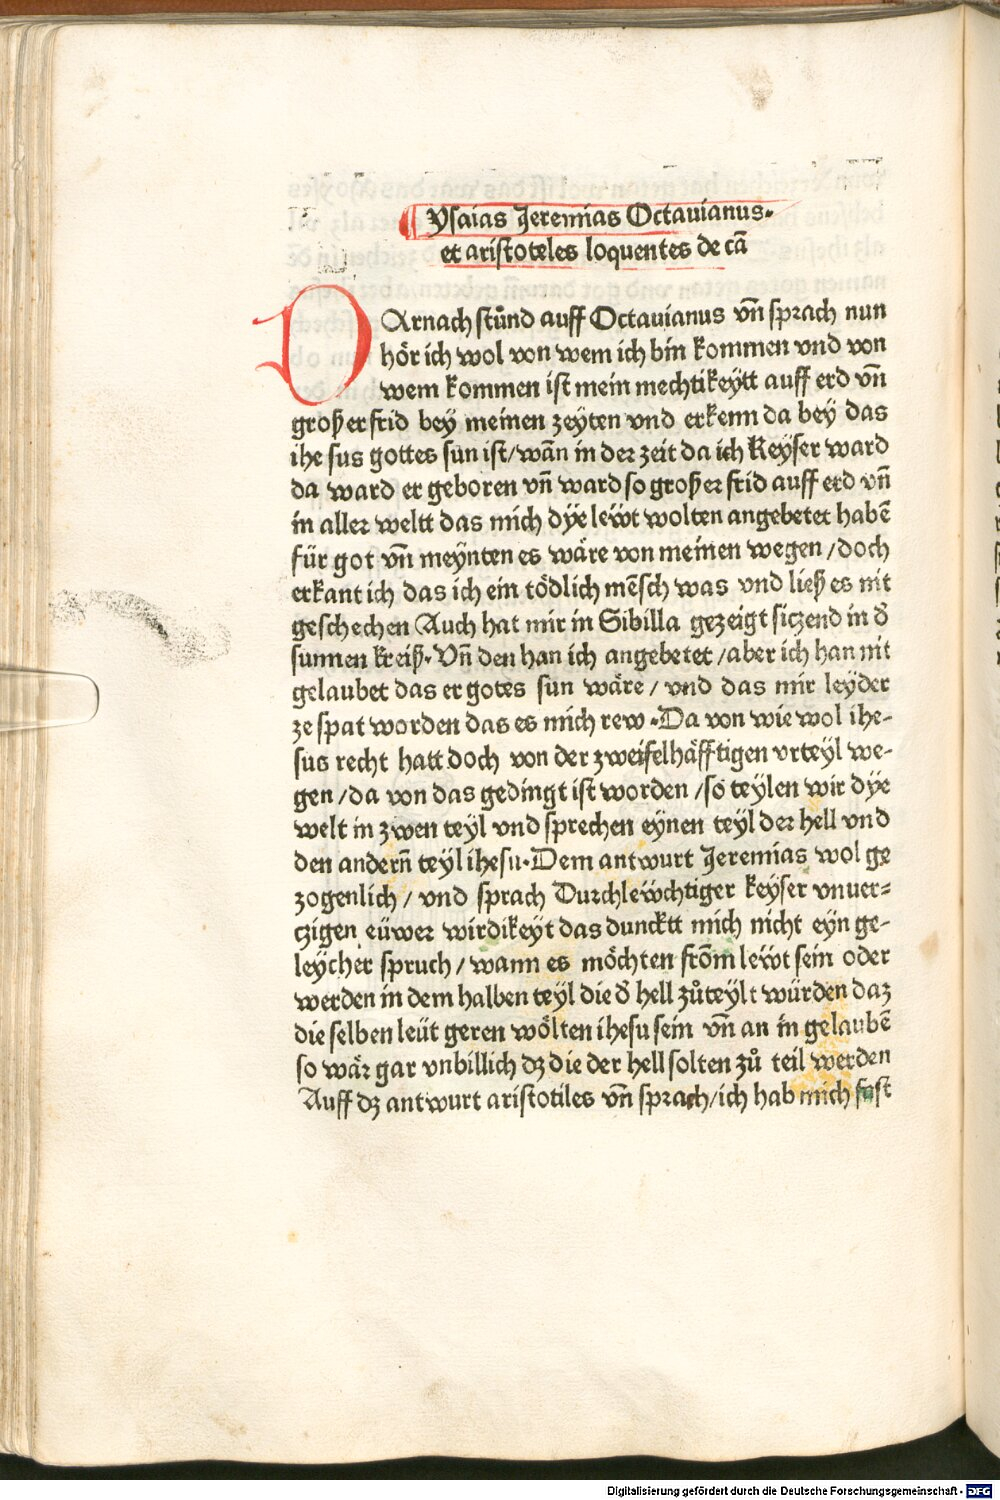 Ysaias Jeremias Octauianus.
et aristoteles loquentes de cā
DArnach stůnd auff Octauianus vn̄ sprach nun
hör ich wol von wem ich bin kommen vnd von
wem kommen ist mein mechtikeÿtt auff erd vn̄
großer frid beÿ meinen zeÿten vnd erkenn da beÿ das
ihe sus gottes sun ist/wān in der zeit da ich Keÿser ward
da ward er geboren vn̄ ward so großer frid auff erd vn̄
in aller weltt das mich dÿe leẅt wolten angebetet habē
für got vn̄ meÿnten es wäre von meinen wegen/doch
erkant ich das ich ein tödlich mēsch was vnd ließ es nit
geschechen Auch hat mir in Sibilla gezeigt siczend in d̄
sunnen kreiß. Vn̄ den han ich angebetet/aber ich han nit
gelaubet das er gotes sun wäre/vnd das mir leÿder
ze spat worden das es mich rew. Da von wie wol ihe-
sus recht hatt doch von der zweifelhäfftigen vrteÿl we-
gen/da von das gedingt ist worden/so teÿlen wir dÿe
welt in zwen teÿl vnd sprechen eÿnen teÿl der hell vnd
den andern̄ teÿl ihesu. Dem antwurt Jeremias wol ge
zogenlich/vnd sprach Durchleẅchtiger keÿser vnuer-
czigen eüwer wirdikeÿt das duncktt mich nicht eÿn ge-
leÿcher spruch/wann es möchten frōm leẅt sein oder
werden in dem halben teÿl die d̄ hell zůteÿlt würden daz
die selben leüt geren wölten ihesu sein vn̄ an in gelaubē
so wär gar vnbillich dz die der hell solten zů teil werden
Auff dz antwurt aristotiles vn̄ sprach/ich hab mich fast
Digitalisierung gefördert durch die Deutsche Forschungsgemeinschaft - DFG